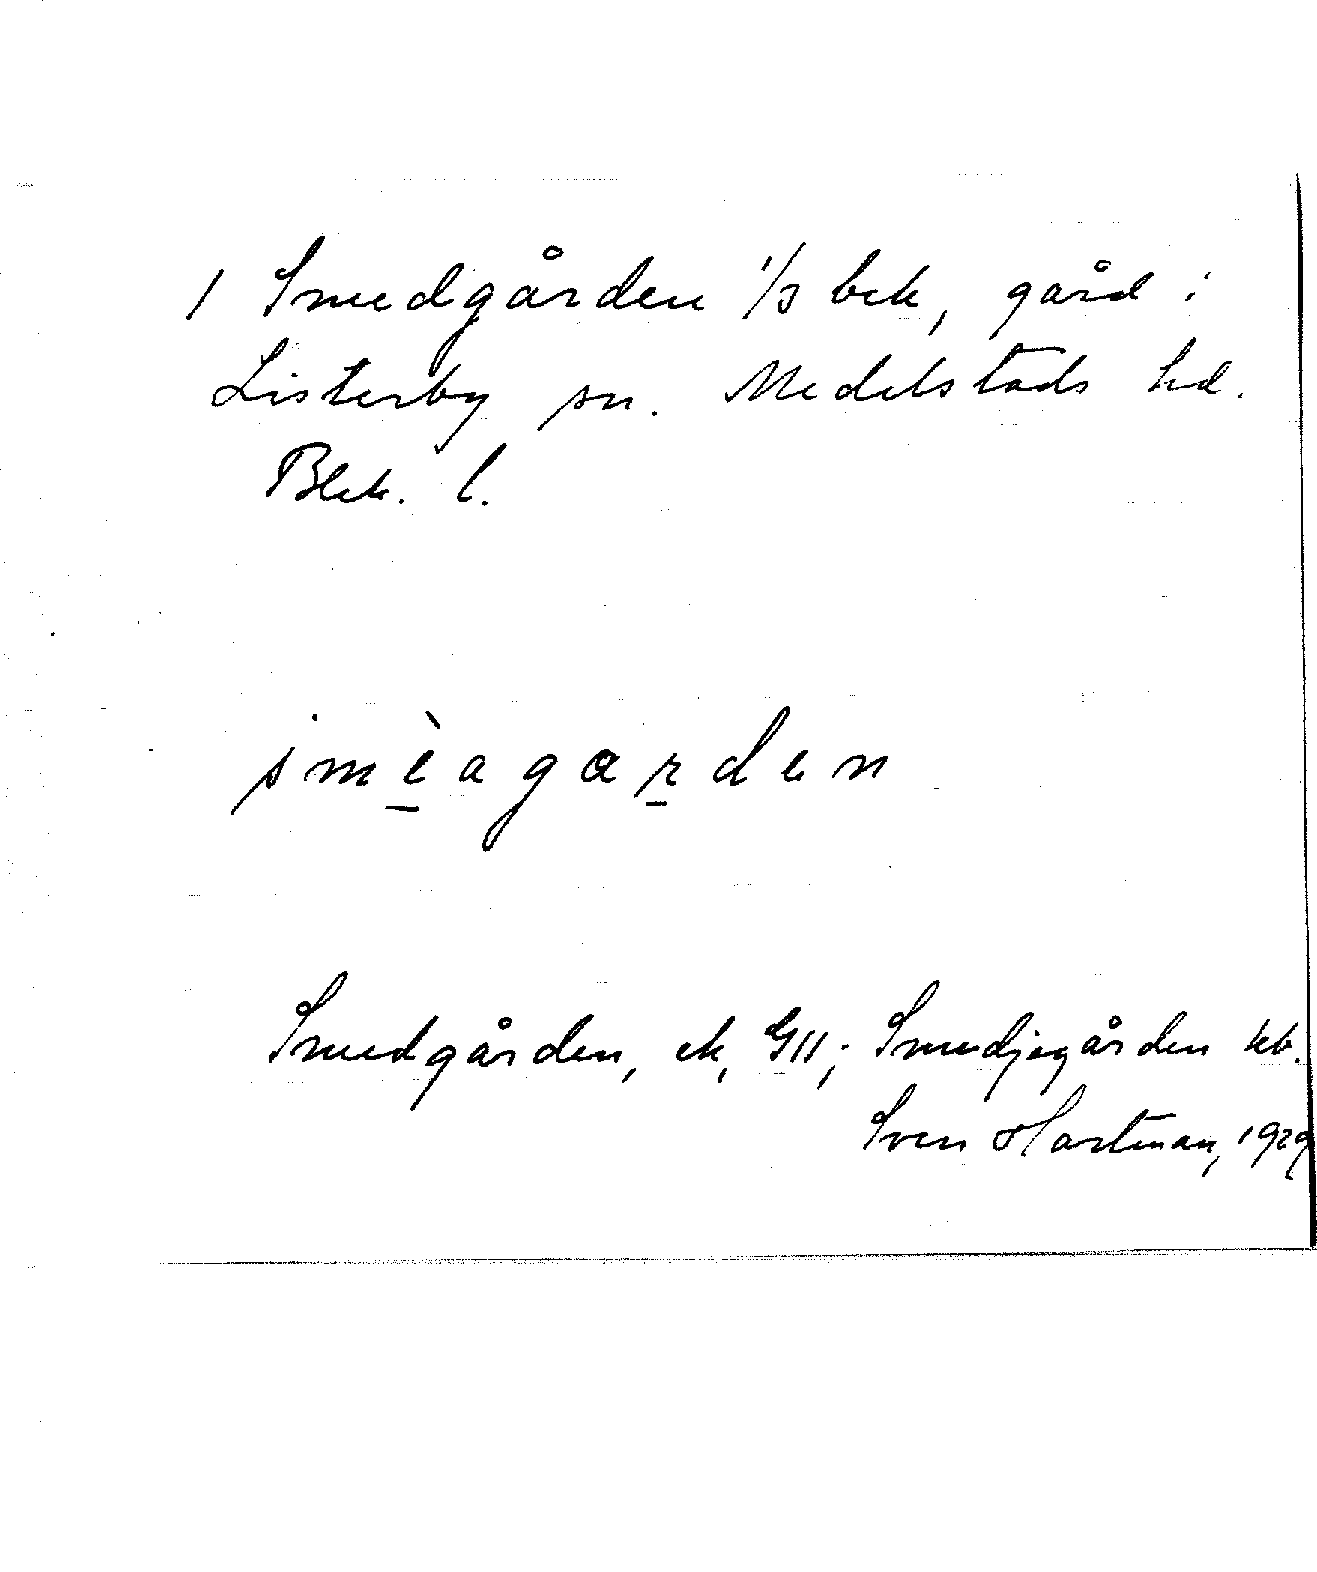 1 Smedgården 1/3 bck, gård i
Listerby sn. Medelstads hd.
Blek. l.
smèagarden
Smedgården, ek, G11; Smedjegården kb.
Sven Hartman, 1929